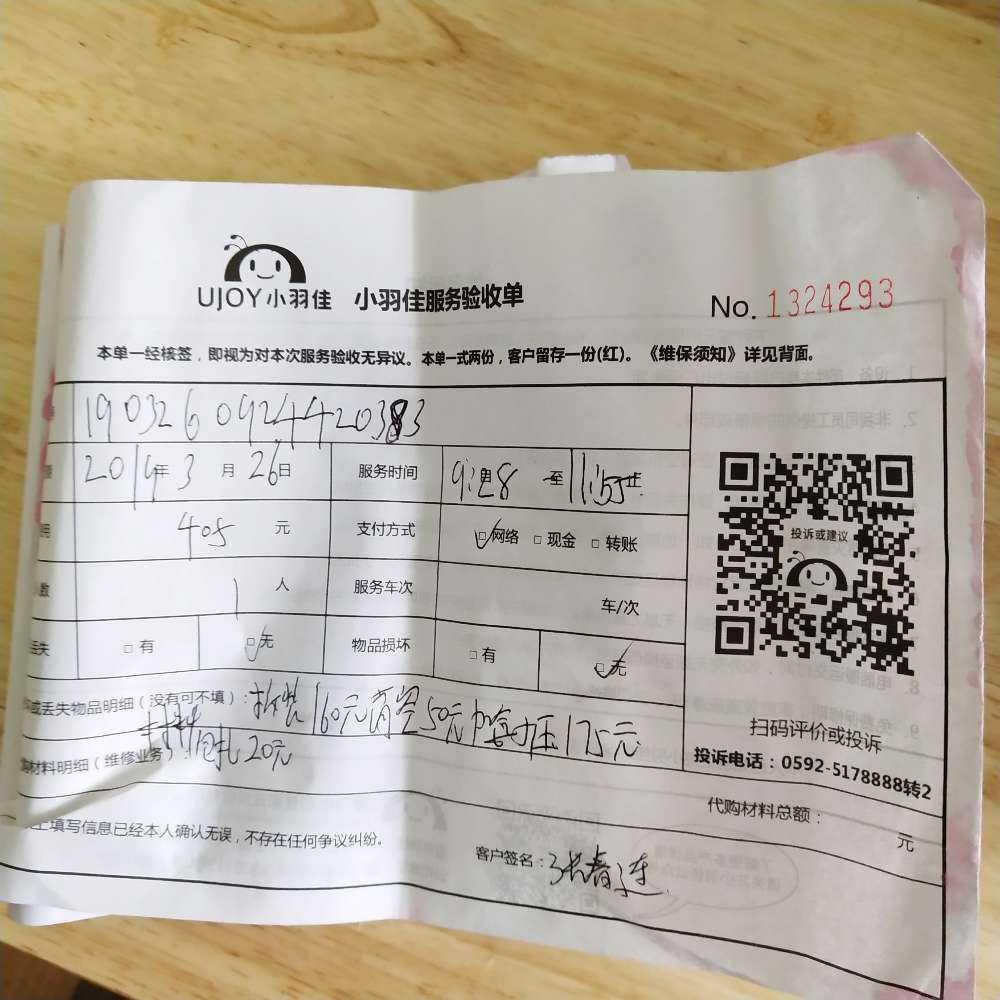 UJOY小羽佳 小羽佳服务验收单 No. 1324293
本单一经核签，即视为对本次服务验收无异议。本单一式两份，客户留存一份(红)。《维保须知》详见背面。
2019年3月26日 服务时间 至
用 405 元 支付方式 网络 现金 转账
人数 1 人 服务车次 车/次
丢失 有 无 物品损坏 有 无
或丢失物品明细（没有可不填）： 拆装160元 真空50元 加氟 压175元
材料明细（维修业务） 20元
投诉或建议
扫码评价或投诉
投诉电话：0592-5178888转2
代购材料总额： 元
上填写信息已经本人确认无误，不存在任何争议纠纷。
客户签名：